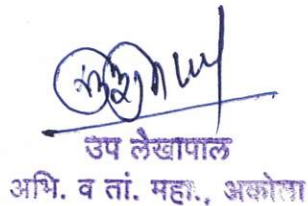 उप लेखापाल
अभि. व तां. महा., अकोला